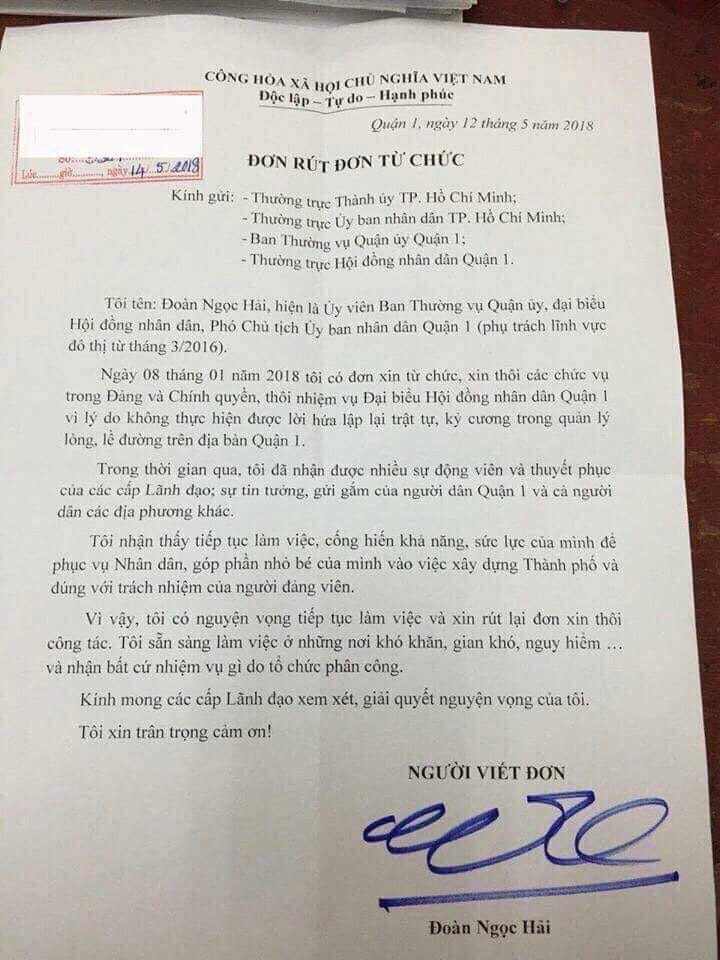 CỘNG HÒA XÃ HỘI CHỦ NGHĨA VIỆT NAM
Độc lập – Tự do – Hạnh phúc
Quận 1, ngày 12 tháng 5 năm 2018
Lúc.......giờ..........., ngày 14/5/2018
ĐƠN RÚT ĐƠN TỪ CHỨC
Kính gửi: - Thường trực Thành ủy TP. Hồ Chí Minh;
- Thường trực Ủy ban nhân dân TP. Hồ Chí Minh;
- Ban Thường vụ Quận ủy Quận 1;
- Thường trực Hội đồng nhân dân Quận 1.
Tôi tên: Đoàn Ngọc Hải, hiện là Ủy viên Ban Thường vụ Quận ủy, đại biểu
Hội đồng nhân dân, Phó Chủ tịch Ủy ban nhân dân Quận 1 (phụ trách lĩnh vực
đô thị từ tháng 3/2016).
Ngày 08 tháng 01 năm 2018 tôi có đơn xin từ chức, xin thôi các chức vụ
trong Đảng và Chính quyền, thôi nhiệm vụ Đại biểu Hội đồng nhân dân Quận 1
vì lý do không thực hiện được lời hứa lập lại trật tự, kỷ cương trong quản lý
lòng, lề đường trên địa bàn Quận 1.
Trong thời gian qua, tôi đã nhận được nhiều sự động viên và thuyết phục
của các cấp Lãnh đạo; sự tin tưởng, gửi gắm của người dân Quận 1 và cả người
dân các địa phương khác.
Tôi nhận thấy tiếp tục làm việc, cống hiến khả năng, sức lực của mình để
phục vụ Nhân dân, góp phần nhỏ bé của mình vào việc xây dựng Thành phố và
đúng với trách nhiệm của người đảng viên.
Vì vậy, tôi có nguyện vọng tiếp tục làm việc và xin rút lại đơn xin thôi
công tác. Tôi sẵn sàng làm việc ở những nơi khó khăn, gian khó, nguy hiểm …
và nhận bất cứ nhiệm vụ gì do tổ chức phân công.
Kính mong các cấp Lãnh đạo xem xét, giải quyết nguyện vọng của tôi.
Tôi xin trân trọng cảm ơn!
NGƯỜI VIẾT ĐƠN
Đoàn Ngọc Hải